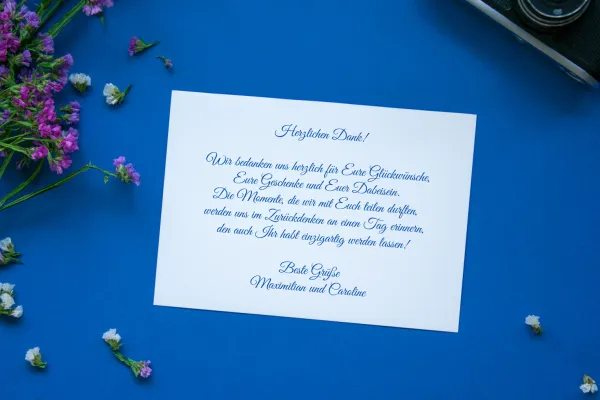 Herzlichen Dank!
Wir bedanken uns herzlich für Eure Glückwünsche,
Eure Geschenke und Euer Dabeisein.
Die Momente, die wir mit Euch teilen durften,
werden uns im Zurückdenken an einen Tag erinnern,
den auch Ihr habt einzigartig werden lassen!
Beste Grüße
Maximilian und Caroline